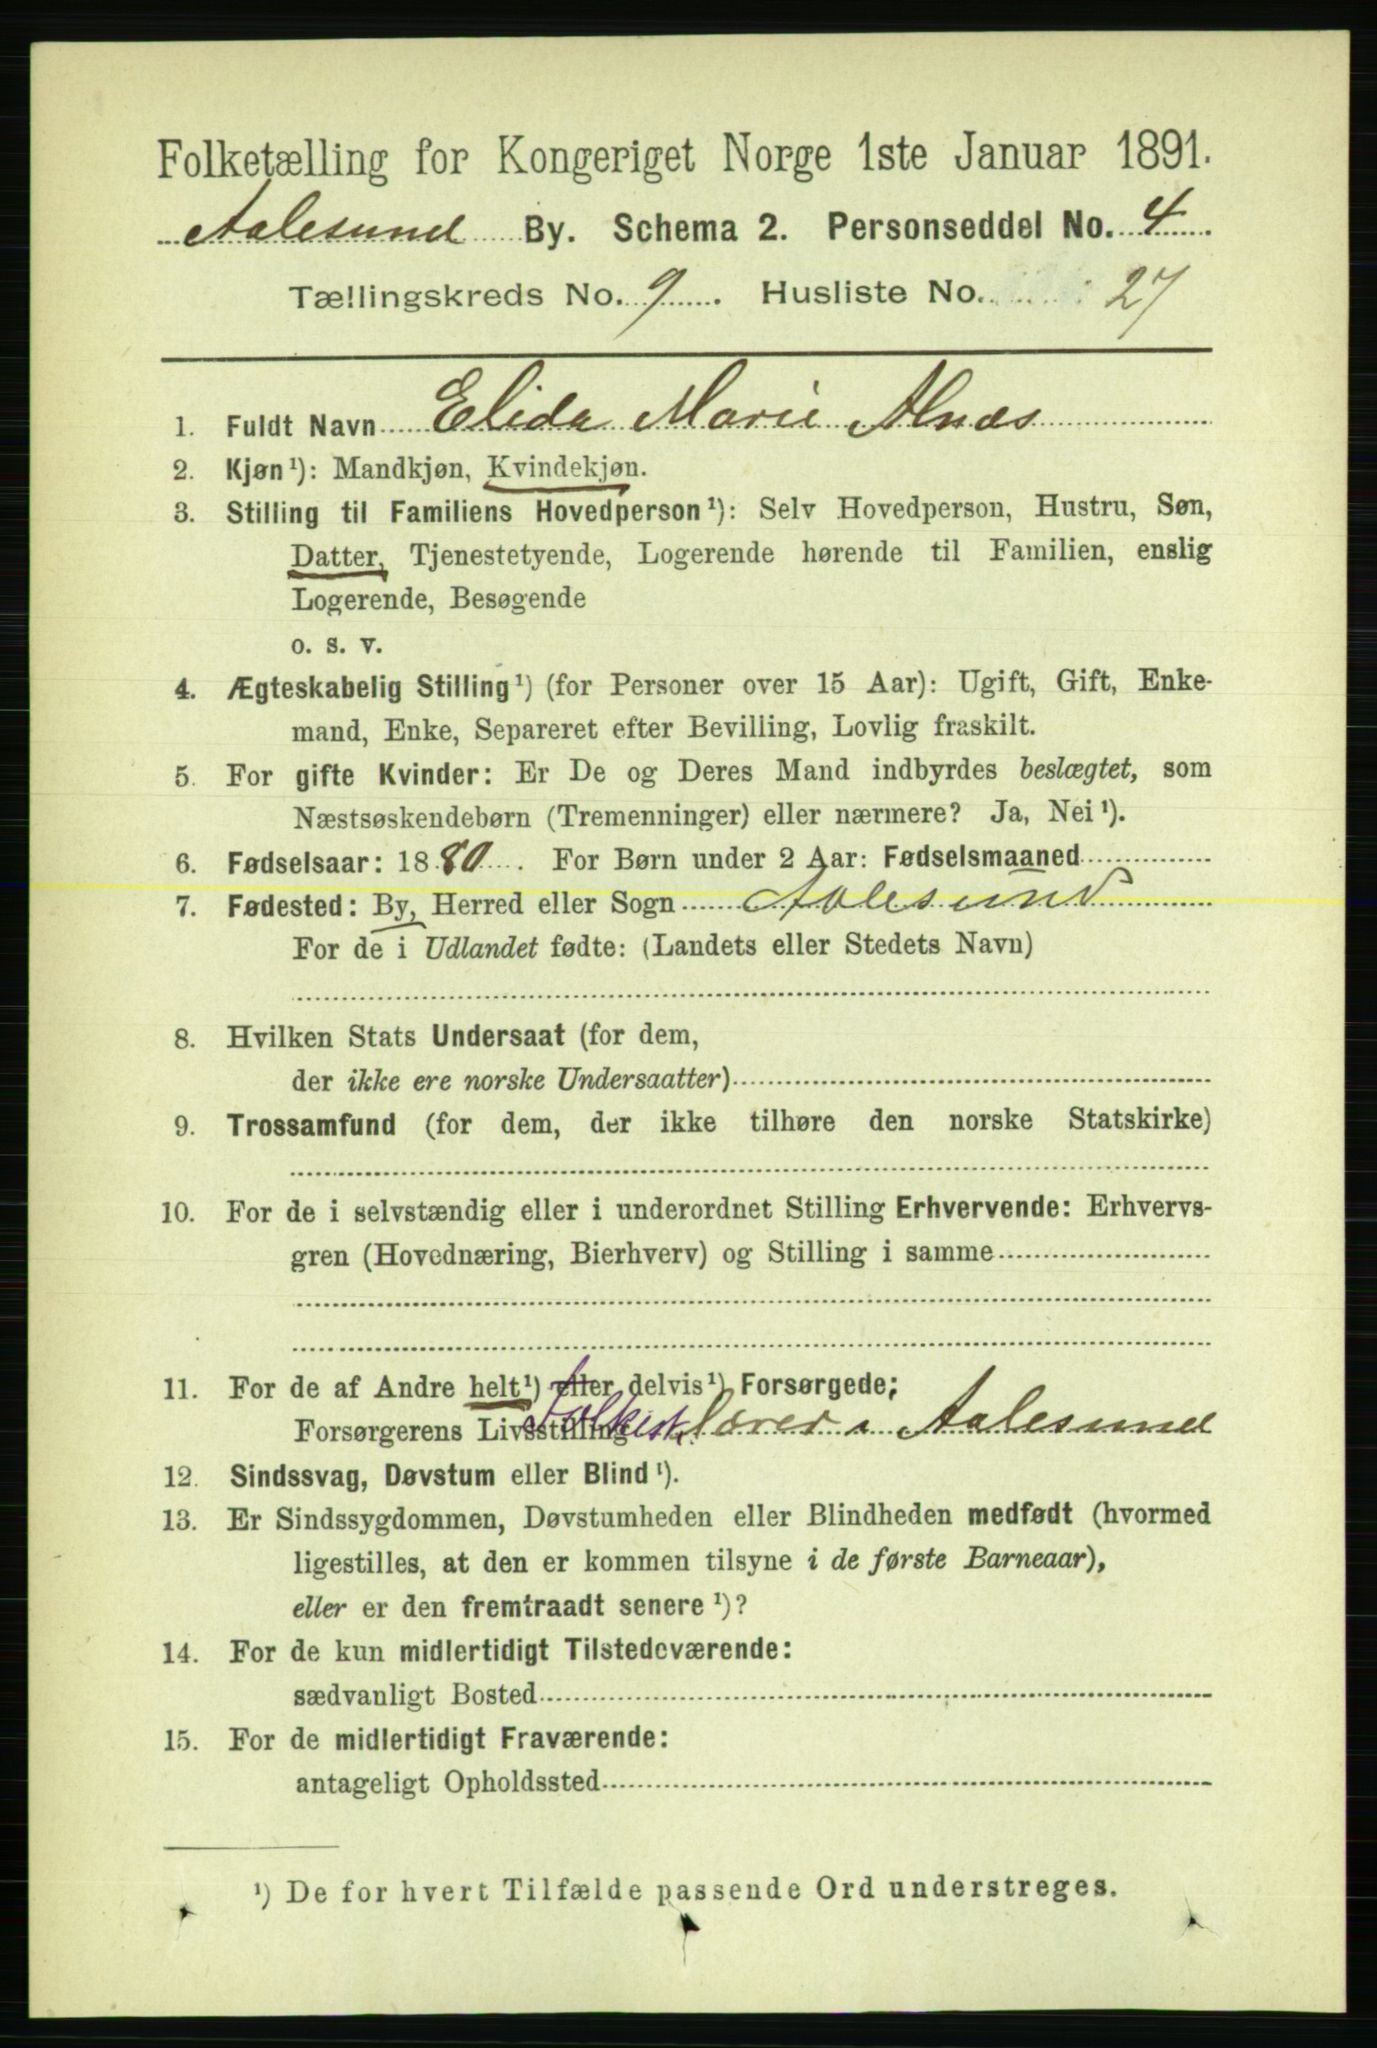 Folketælling for Kongeriget Norge 1ste Januar 1891.
Aalesund By. Schema 2. Personseddel No. 4
Tællingskreds No. 9. Husliste No. 27
1. Fuldt Navn Elida Marie Alnæs
2. Kjøn¹): Mandkjøn, Kvindekjøn.
3. Stilling til Familiens Hovedperson¹): Selv Hovedperson, Hustru, Søn,
Datter, Tjenestetyende, Logerende hørende til Familien, enslig
Logerende, Besøgende
o. s. v.
4. Ægteskabelig Stilling¹) (for Personer over 15 Aar): Ugift, Gift, Enke-
mand, Enke, Separeret efter Bevilling, Lovlig fraskilt.
5. For gifte Kvinder: Er De og Deres Mand indbyrdes beslægtet, som
Næstsøskendebørn (Tremenninger) eller nærmere? Ja, Nei¹).
6. Fødselsaar: 1880. For Børn under 2 Aar: Fødselsmaaned
7. Fødested: By, Herred eller Sogn Aalesund
For de i Udlandet fødte: (Landets eller Stedets Navn)
8. Hvilken Stats Undersaat (for dem,
der ikke ere norske Undersaatter)
9. Trossamfund (for dem, der ikke tilhøre den norske Statskirke)
10. For de i selvstændig eller i underordnet Stilling Erhvervende: Erhvervs-
gren (Hovednæring, Bierhverv) og Stilling i samme
11. For de af Andre helt¹) eller delvis¹) Forsørgede;
Forsørgerens Livsstilling Folkesk. lærer i Aalesund
12. Sindssvag, Døvstum eller Blind¹).
13. Er Sindssygdommen, Døvstumheden eller Blindheden medfødt (hvormed
ligestilles, at den er kommen tilsyne i de første Barneaar),
eller er den fremtraadt senere¹)?
14. For de kun midlertidigt Tilstedeværende:
sædvanligt Bosted
15. For de midlertidigt Fraværende:
antageligt Opholdssted
¹) De for hvert Tilfælde passende Ord understreges.